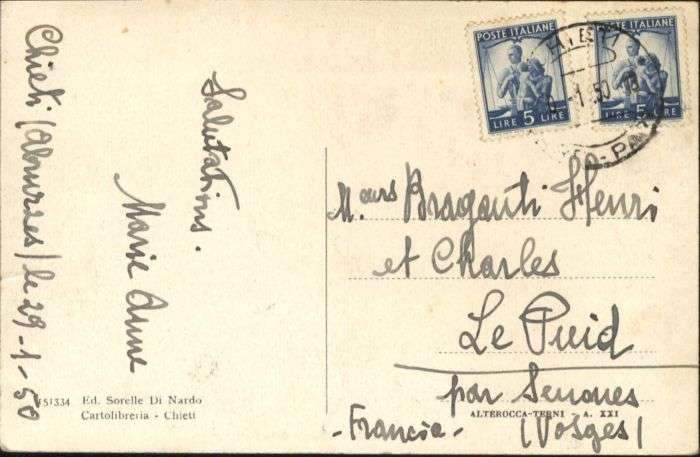 Chieti (Abruzzes) le 29-1-50
Salutations.
Marie Anne
151334 Ed. Sorelle Di Nardo
Cartolibreria - Chieti
POSTE ITALIANE
LIRE 5 LIRE
POSTE ITALIANE
LIRE 5
-1.50
M.eurs Braganti Henri
et Charles
Le Puid
par Senones
ALTEROCCA-TERNI - A. XXI
(Vosges)
- Francia -